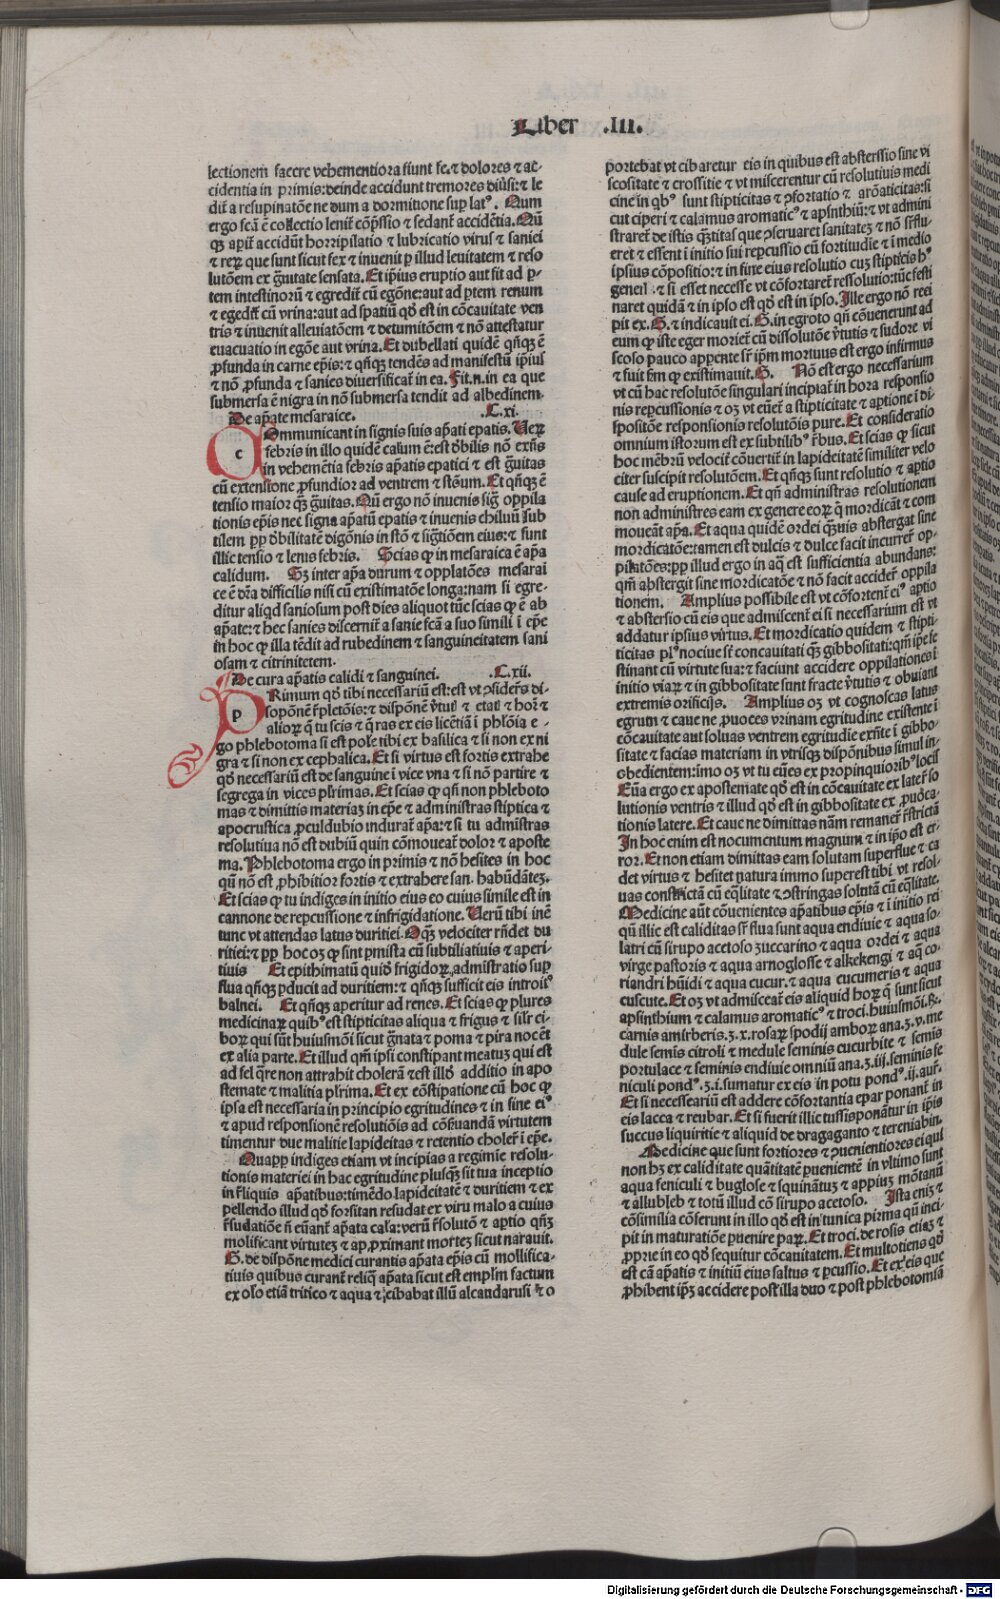 Liber .III.
lectionem facere vehementiora fiunt fe. ⁊ dolores ⁊ ac-
cidentia in primis: deinde accidunt tremores diūsi: ⁊ le
ergo fcā ē collectio lenit cōpssio ⁊ sedant accidētia. Qn̄
qꝫ apit accidūt horripilatio ⁊ lubricatio virus ⁊ saniei
⁊ rex que sunt sicut fex ⁊ inuenit p illud leuitatem ⁊ reso
lutōem ex grauitate sensata. Et ipius eruptio aut fit ad p-
tem intestinorū ⁊ egredit cū egōne: aut ad ptem renum
⁊ egredit cū vrina: aut ad spatiū qd est in cōcauitate ven
tris ⁊ inuenit alleuiatōem ⁊ detumitōem ⁊ nō attestatur
euacuatio in egōe aut vrina. Et dubellati quidē qn̄qꝫ ē
profunda in carne epis: ⁊ qn̄qꝫ tendēs ad manifestū ipius
⁊ nō profunda ⁊ sanies diuersificat in ea. Fit.n. in ea que
submersa ē nigra in nō submersa tendit ad albedinem.
De apate mesaraice. .C.xi.
Communicant in signis suis apati epatis. Uex
febris in illo quidē calum ē: est dbilis nō exn̄s
in vehemētia febris apatis epatici ⁊ est grauitas
cū extensione profundior ad ventrem ⁊ stōum. Et qn̄qꝫ ē
tensio maior qꝫ grauitas. Qn̄ ergo nō inuenis sig oppila
tionis epis nec signa apatū epatis ⁊ inuenis chiluū sub
tilem pp dbilitatē digōnis in stō ⁊ sigtiōem eius: ⁊ sunt
illic tensio ⁊ lenis febris. Scias qp in mesaraica ē apa
calidum. Sꝫ inter apa durum ⁊ opplatōes mesarai
ce ē dra difficilis nisi cū existimatōe longa: nam si egre-
ditur aliqd saniosum post dies aliquot tūc scias qp ē ab
apate: ⁊ hec sanies discernit a sanie fcā a suo simili i epe
in hoc qp illa tēdit ad rubedinem ⁊ sanguineitatem sani
osam ⁊ citrinitetem.
De cura apatis calidi ⁊ sanguinei. .C.xii.
Primum qd tibi necessariū est: est vt 9siders di-
sopōnē rpletōis: ⁊ dispōnē vtutū ⁊ etatū ⁊ hor ⁊
aliorꝫ q tu scis ⁊ qras ex eis licētiā i phlōia e-
go phlebotoma si est pole tibi ex basilica ⁊ si non ex ni
gra ⁊ si non ex cephalica. Et si virtus est fortis extrahe
qd necessariū est de sanguine i vice vna ⁊ si nō partire ⁊
segrega in vices plrimas. Et scias qp qn̄ non phleboto
mas ⁊ dimittis materiaꝫ in epe ⁊ administras stiptica ⁊
apocrustica proculdubio indurat apa: ⁊ si tu admistras
resolutiua nō est dubiū quin cōmoueat dolor ⁊ aposte
ma. Phlebotoma ergo in primis ⁊ nō hesites in hoc
qn̄ nō est prohibitior fortis ⁊ extrahere san. habūdātez.
Et scias qp tu indiges in initio eius eo cuius simile est in
cannone de repcussione ⁊ infrigidatione. Uerū tibi inē
tunc vt attendas latus duritiei. Oqꝫ velociter rn̄det du
ritiei: ⁊ pp hoc oꝫ qp sint pmista cū subtiliatiuis ⁊ aperi-
tiuis Et epithimatū quid frigidoꝝ, admistratio sup
flua qn̄qꝫ pducit ad duritiem: ⁊ qn̄qꝫ sufficit eis introit9
balnei. Et qn̄qꝫ aperitur ad renes. Et scias qp plures
medicinaꝝ quib9 est stipticitas aliqua ⁊ frigus ⁊ silr ci-
boꝝ qui sūt huiusmōi sicut grnata ⁊ poma ⁊ pira nocēt
ex alia parte. Et illud qm̄ ipsi constipant meatuꝫ qui est
ad fel qre non attrahit cholerā ⁊ est illd additio in apo
stemate ⁊ malitia plrima. Et ex cōstipatione cū hoc qp
ipsa est necessaria in principio egritudines ⁊ in fine ei9
⁊ apud responsionē resolutiōis ad cōseruandā virtutem
timentur due malitie lapideitas ⁊ retentio choler i epe.
Quapp indiges etiam vt incipias a regimie resolu-
tionis materiei in hac egritudine plusqꝫ sit tua inceptio
in rliquis apatibus: timēdo lapideitatē ⁊ duritiem ⁊ ex
pellendo illud qd forsitan resudat ex viru malo a cuius
rsudatiōe n euānt apata cala: verū rsolutō ⁊ aptio qn̄qꝫ
molificant virtuteꝫ ⁊ approximant morteꝫ sicut narauit.
G. de dispōne medici curantis apata epis cū mollifica-
tiuis quibus curant reliqu apata sicut est emplm factum
ex olo etiā tritico ⁊ aqua ⁊ cibabat illū alcandarusi ⁊ o
portebat vt cibaretur eis in quibus est abstersio sine vi
scositate ⁊ crossitie ⁊ vt miscerentur cū resolutiuis medi
cine in qb9 sunt stipticitas ⁊ 9fortatio ⁊ arōaticitas: si
cut ciperi ⁊ calamus aromatic9 ⁊ apsinthiū: ⁊ vt admini
straret de istis qꝫtitas que 9seruaret sanitateꝫ ⁊ nō sufflu-
eret ⁊ essent i initio sui repcussio cū fortitudie ⁊ i medio
ipsius cōpositio: ⁊ in fine eius resolutio cuꝫ stipticis h9
generi. ⁊ si esset necesse vt cōfortaret ressolutio: tūc festi
naret quidā ⁊ in ipso est qd est in ipso. Ille ergo nō reci
pit ex. G. ⁊ indicauit ei. G. in egroto qn̄ cōuenerunt ad
eum qp iste eger moriet cū dissolutōe vtutis ⁊ sudore vi
scoso pauco apparente sr ipm mortuus est ergo infirmus
⁊ fuit sm qp existimauit. G. Nō est ergo necessarium
vt cū hac resolutōe singulari incipiat in hora responsio
nis repcussionis ⁊ oꝫ vt euēt a stipticitate ⁊ aptione i di-
spositōe responsionis resolutōis pure. Et consideratio
omnium istorum est ex subtilib9 rbus. Et scias qp sicut
hoc mēbrū velocit cōuertit in lapideitatē similiter velo
citer suscipit resolutōem. Et qn̄qꝫ sunt resolutio ⁊ aptio
cause ad eruptionem. Et qn̄ administras resolutionem
non administres eam ex genere eorꝫ q mordicāt ⁊ com
moueāt apa. Et aqua quidē ordei qꝫuis abstergat sine
mordicatōe: tamen est dulcis ⁊ dulce facit incurrer op-
pilatōes: pp illud ergo in aqꝫ est sufficientia abundans:
qm̄ abstergit sine mordicatōe ⁊ nō facit accider oppila
tionem. Amplius possibile est vt cōfortent ei9 aptio
⁊ abstersio cū eis que admiscent ei si necessarium est vt
addatur ipsius virtus. Et mordicatio quidem ⁊ stipti-
ticitas pl9 nociue sr concauitati qꝫ gibbositati: qm̄ ipe fe
stinant cū virtute sua: ⁊ faciunt accidere oppilationes i
initio viaꝝ ⁊ in gibbositate sunt fracte vtutis ⁊ obuiant
extremis orificijs. Amplius oꝫ vt cognoscas latus
egrum ⁊ caue ne prouoces vrinam egritudine existente i
cōcauitate aut soluas ventrem egritudie exn̄te i gibbo-
sitate ⁊ facias materiam in vtrisqꝫ dispōnibus simul in-
obedientem: imo oꝫ vt tu euēes ex propinquiorib9 locis
Euā ergo ex apostemate qd est in cōcauitate ex later so
lutionis ventris ⁊ illud qd est in gibbositate ex prouoca-
tionis latere. Et caue ne dimittas nām remaner rstrictā
In hoc enim est nocumentum magnum ⁊ in ipso est er-
ror. Et non etiam dimittas eam solutam superflue ⁊ ca
det virtus ⁊ hesitet natura immo superest tibi vt resol-
uas constrictā cū eqlitate ⁊ 9stringas solutā cū eqlitate.
Medicine aūt cōuenientes apatibus epis ⁊ i initio rei
qn̄ illic est caliditas sr flua sunt aqua endiuie ⁊ aqua so-
latri cū sirupo acetoso zuccarino ⁊ aqua ordei ⁊ aqua
virge pastoris ⁊ aqua arnoglosse ⁊ alkekengi ⁊ aq co-
riandri hūidi ⁊ aqua cucur. ⁊ aqua cucumeris ⁊ aqua
cuscute. Et oꝫ vt admisceat eis aliquid horꝫ q sunt sicut
apsinthium ⁊ calamus aromatic9 ⁊ troci. huiusmōi. R.
carnis amirberis. ʒ.x. rosaꝝ spodij amboꝝ ana. ʒ.v. me
dule semis citroli ⁊ medule seminis cucurbite ⁊ semis
portulace ⁊ seminis endiuie omniū ana. ʒ.iij. seminis fe
niculi pond9. ʒ.i. sumatur ex eis in potu pond9. ij. aur.
Et si necesseariū est addere cōfortantia epar ponant in
eis lacca ⁊ reubar. Et si fuerit illic tussis ponātur in ipis
succus liquiritie ⁊ aliquid de dragaganto ⁊ tereniabin.
Medicine que sunt fortiores ⁊ 9uenientiores ei qui
non hꝫ ex caliditate quātitatē puenientē in vltimo sunt
aqua feniculi ⁊ buglose ⁊ squinātuꝫ ⁊ appiuꝫ mōtanū
⁊ allubleb ⁊ totū illud cō sirupo acetoso. Ista eniꝫ ⁊
cōsimilia cōferunt in illo qd est in tunica prima qn̄ inci-
pit in maturatiōe puenire paꝝ. Et troci. de rosis etiaꝫ ⁊
proprie in eo qd sequitur cōcauitatem. Et multotiens qd
est cā apatis ⁊ initiū eius saltus ⁊ pcussio. Et ex eis que
prohibent ipꝫ accidere post illa duo ⁊ post phlebotomiā
Digitalisierung gefördert durch die Deutsche Forschungsgemeinschaft - DFG